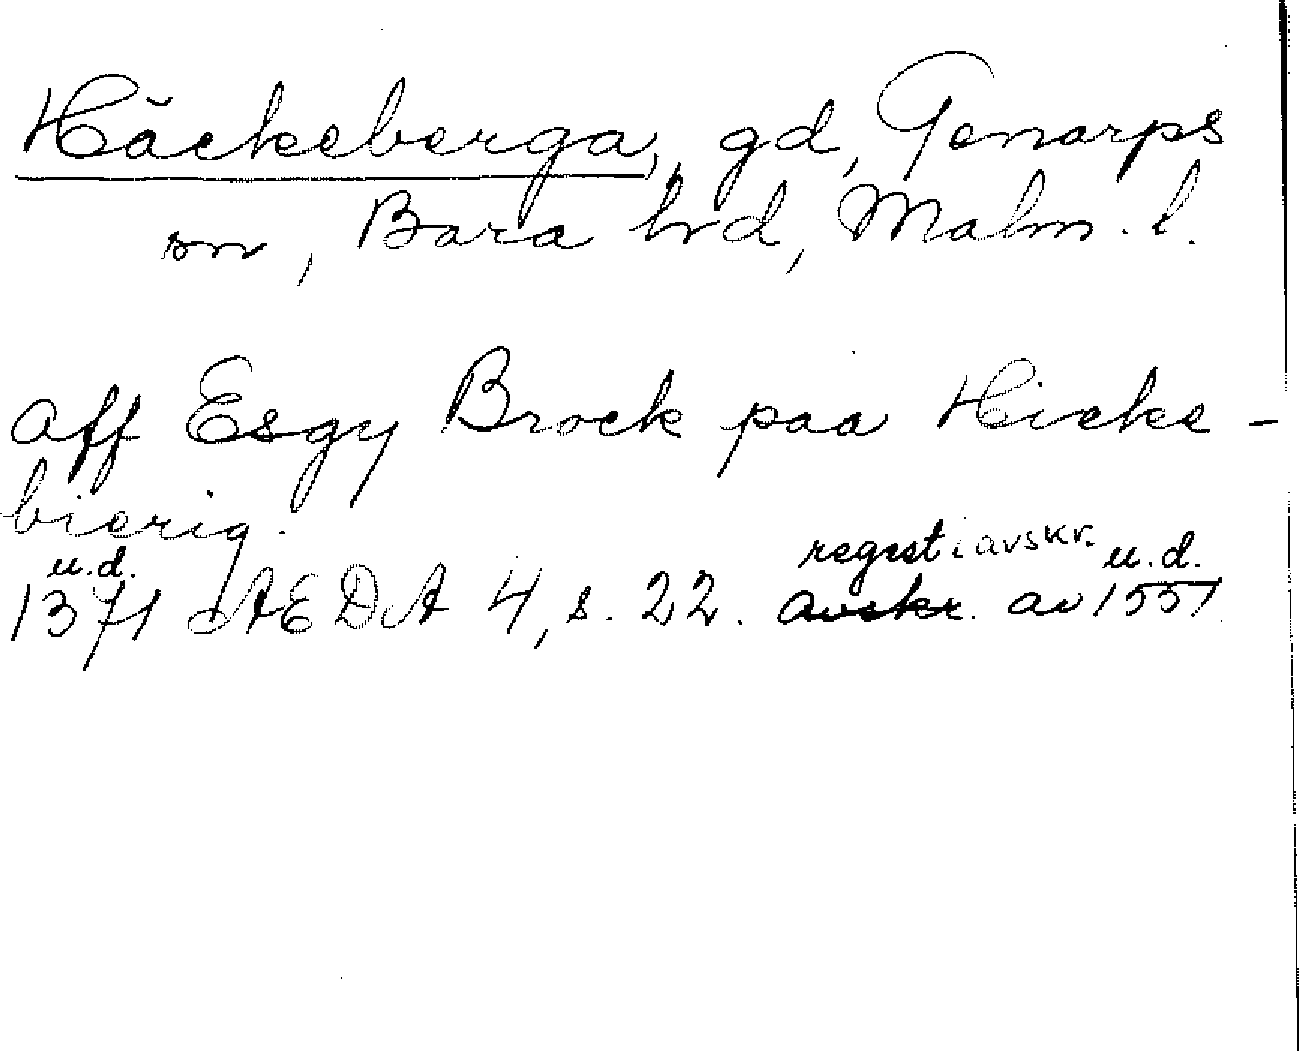 Häckeberga, gd, Genarps
sn, Bara hrd, Malm. l.
aff Esgy Brock paa Hicke-
bierig.
u.d. regest i avskr. u.d.
1371 ÆDA 4, s. 22. avskr. av 1551